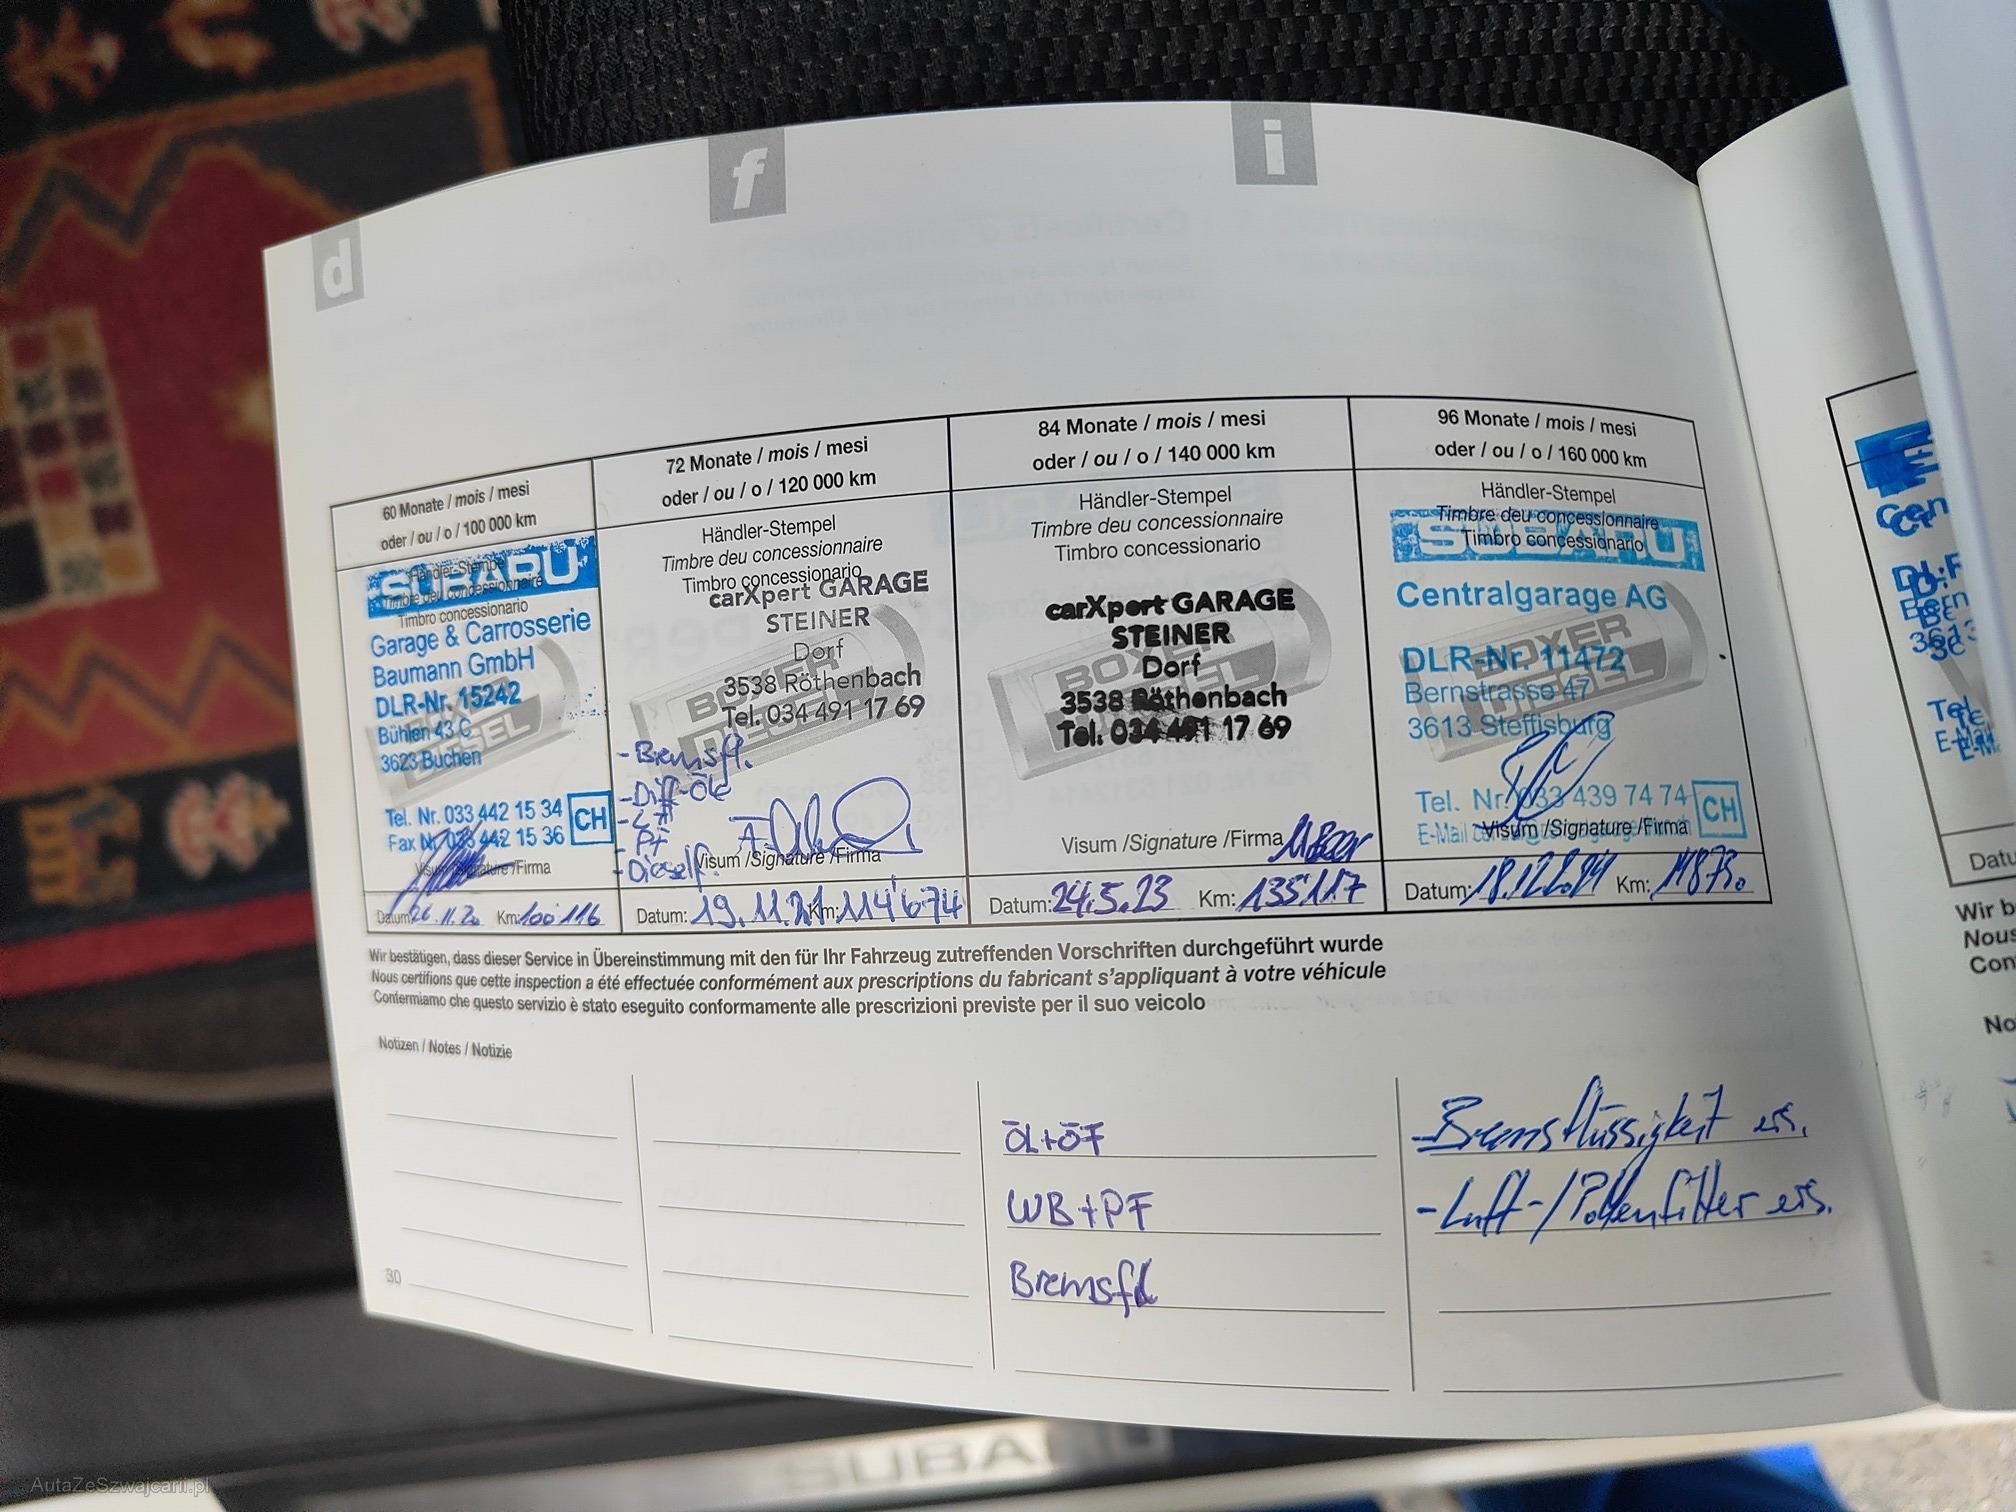 d
f
i
60 Monate / mois / mesi
oder / ou / o / 100 000 km
Händler-Stempel
Timbre deu concessionnaire
Timbro concessionario
SUBARU
Garage & Carrosserie
Baumann GmbH
DLR-Nr. 15242
Bühlen 43 C
3623 Buchen
Tel. Nr. 033 442 15 34
Fax Nr. 033 442 15 36
CH
Visum /Signature /Firma
Datum: 26.11.20 Km: 100 116
72 Monate / mois / mesi
oder / ou / o / 120 000 km
Händler-Stempel
Timbre deu concessionnaire
Timbro concessionario
carXpert GARAGE
STEINER
Dorf
3538 Röthenbach
Tel. 034 491 17 69
BOXER
DIESEL
- Bremsfl.
- Diff-Öl
- LF
- PF
- Dieself.
Visum /Signature /Firma
Datum: 19.11.21 Km: 114'674
84 Monate / mois / mesi
oder / ou / o / 140 000 km
Händler-Stempel
Timbre deu concessionnaire
Timbro concessionario
carXpert GARAGE
STEINER
Dorf
3538 Röthenbach
Tel. 034 491 17 69
BOXER
Visum /Signature /Firma
Datum: 24.5.23 Km: 135'117
96 Monate / mois / mesi
oder / ou / o / 160 000 km
Händler-Stempel
Timbre deu concessionnaire
Timbro concessionario
SUBARU
Centralgarage AG
DLR-Nr. 11472
Bernstrasse 47
3613 Steffisburg
BOXER
DIESEL
Tel. Nr. 033 439 74 74
E-Mail
CH
Visum /Signature /Firma
Datum: Km:
Wir bestätigen, dass dieser Service in Übereinstimmung mit den für Ihr Fahrzeug zutreffenden Vorschriften durchgeführt wurde
Nous certifions que cette inspection a été effectuée conformément aux prescriptions du fabricant s'appliquant à votre véhicule
Confermiamo che questo servizio è stato eseguito conformamente alle prescrizioni previste per il suo veicolo
Notizen / Notes / Notizie
ÖL+ÖF
WB+PF
Bremsfl
- Bremsflüssigkeit ers.
- Luft-/Pollenfilter ers.
30
Datu
Wir b
Nous
Con
No
SUBARU
AutaZeSzwajcarii.pl